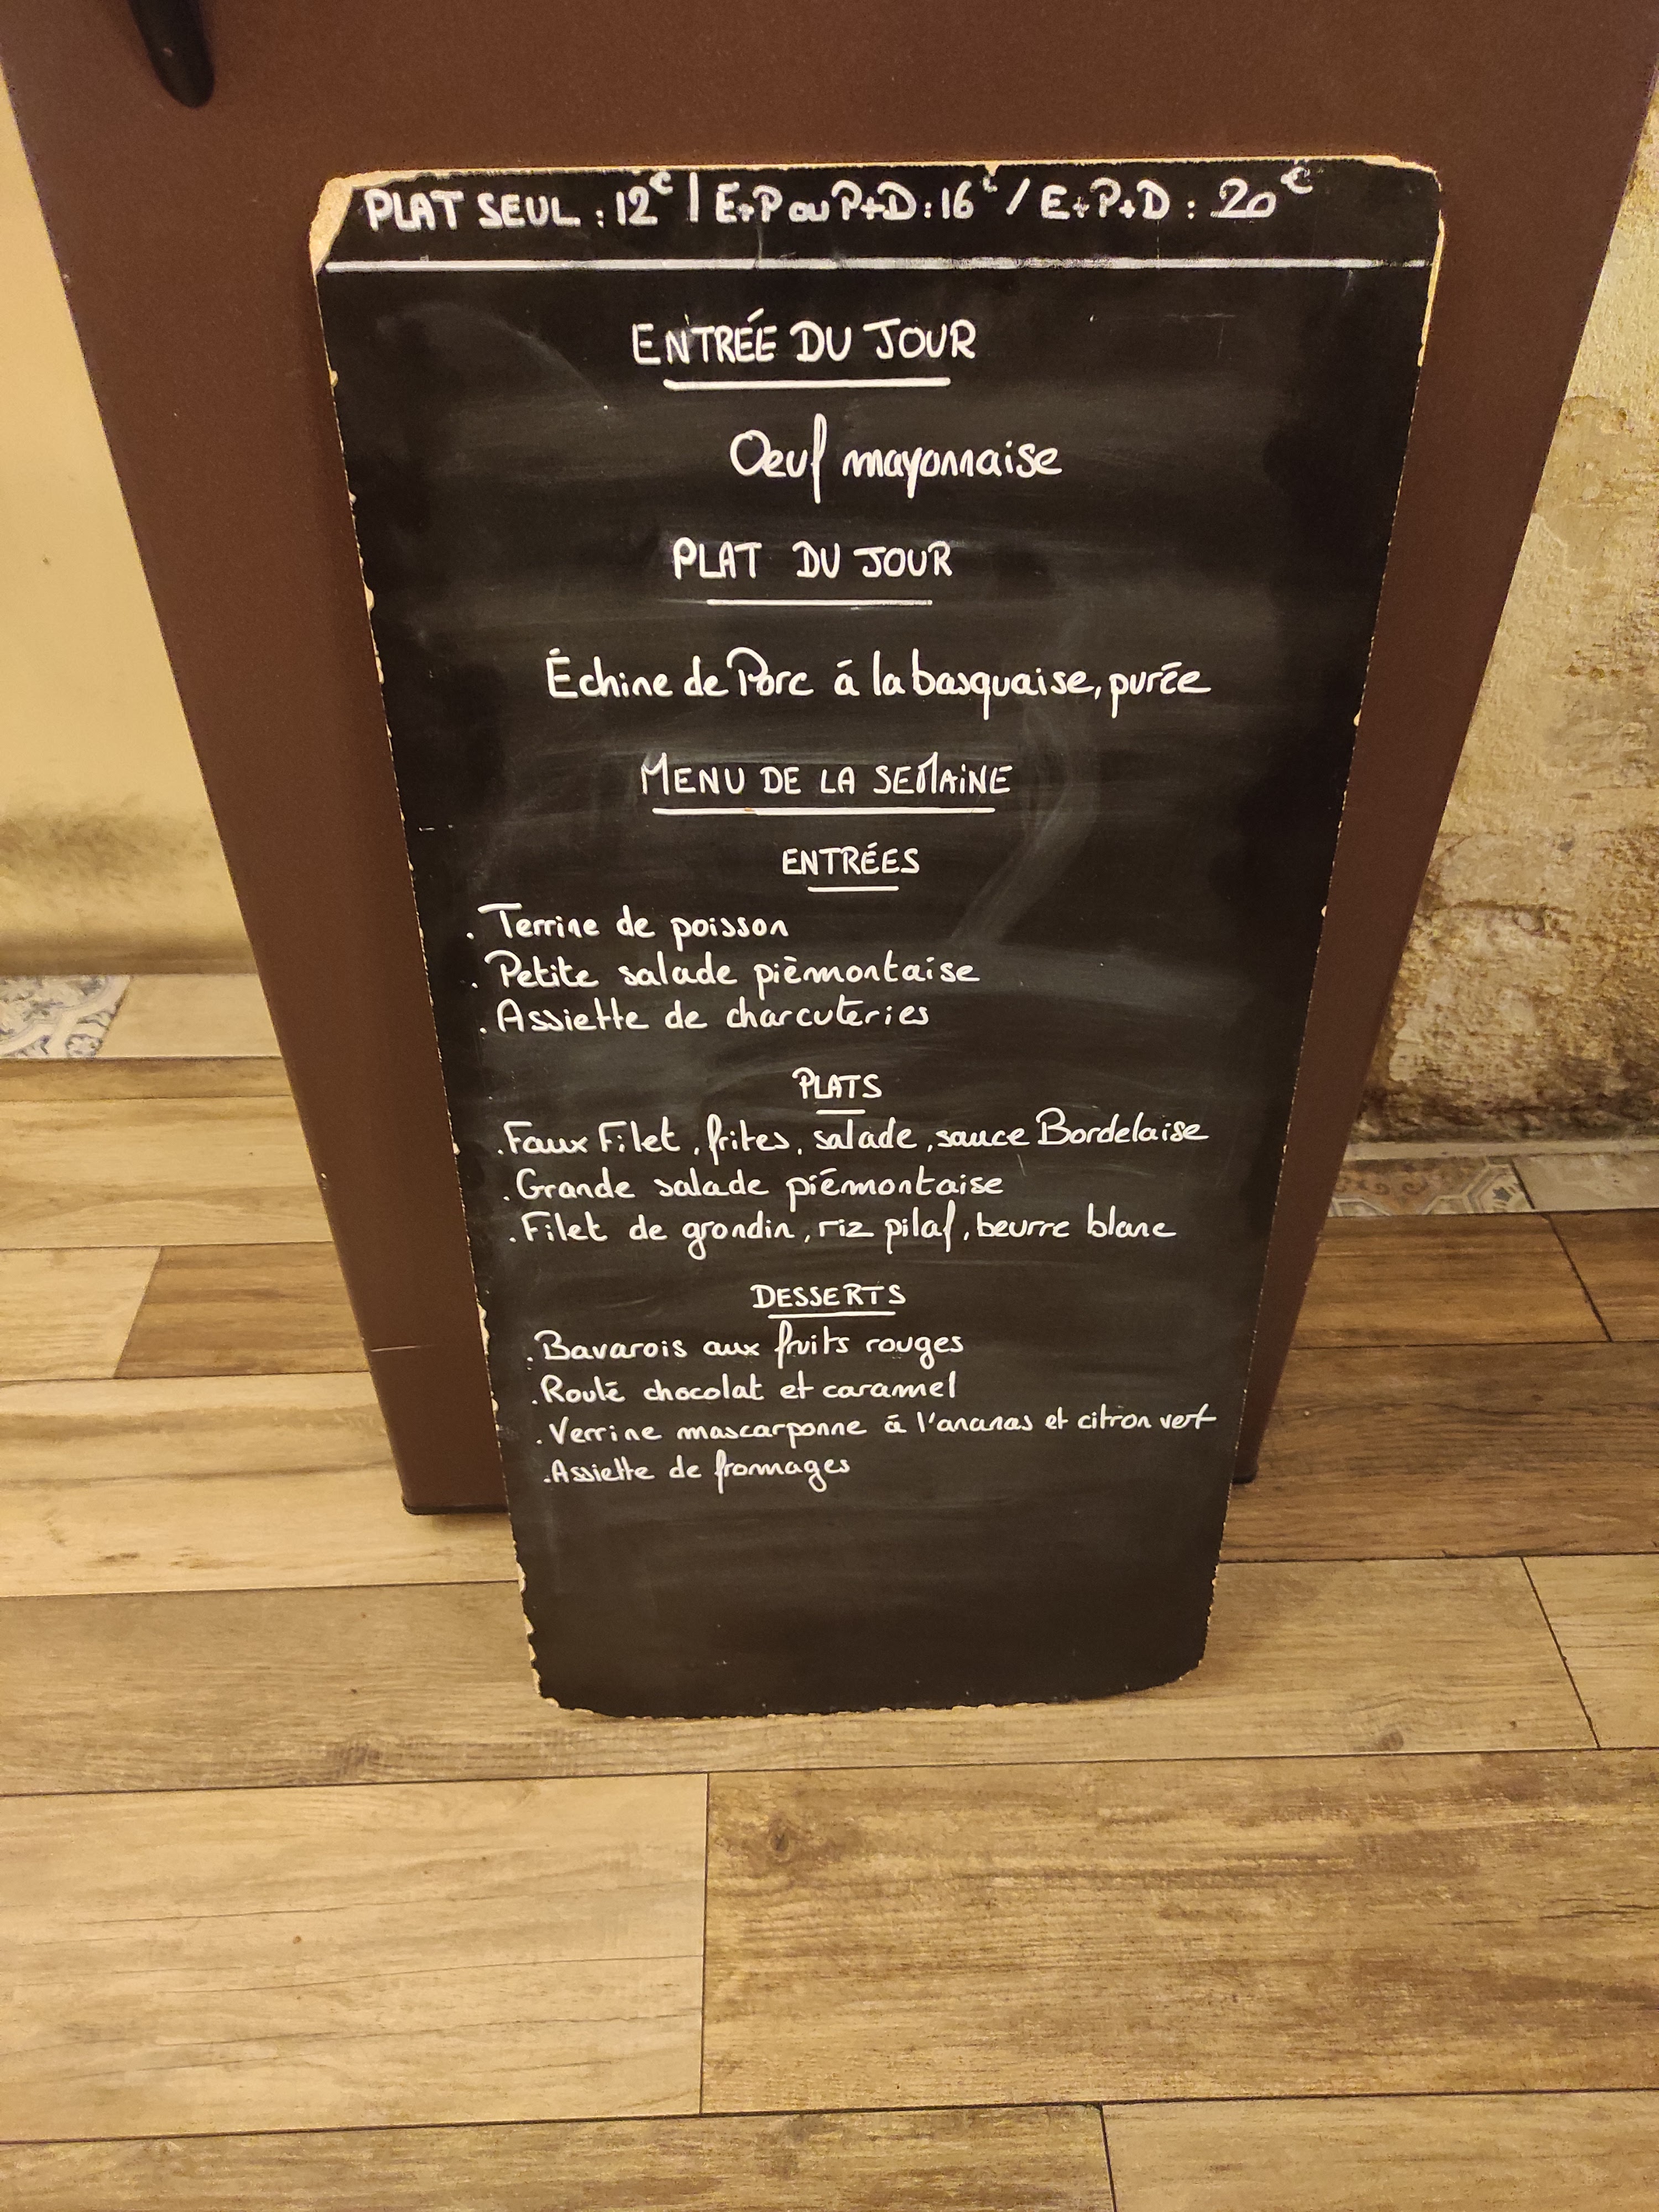 PLAT SEUL : 12€ | E+P ou P+D : 16€ / E+P+D : 20€
ENTRÉE DU JOUR
Oeuf mayonnaise
PLAT DU JOUR
Échine de Porc à la basquaise, purée
MENU DE LA SEMAINE
ENTRÉES
. Terrine de poisson
. Petite salade pièmontaise
. Assiette de charcuteries
PLATS
. Faux Filet, frites, salade, sauce Bordelaise
. Grande salade piémontaise
. Filet de grondin, riz pilaf, beurre blanc
DESSERTS
. Bavarois aux fruits rouges
. Roulé chocolat et caramel
. Verrine mascarponne à l'ananas et citron vert
. Assiette de fromages